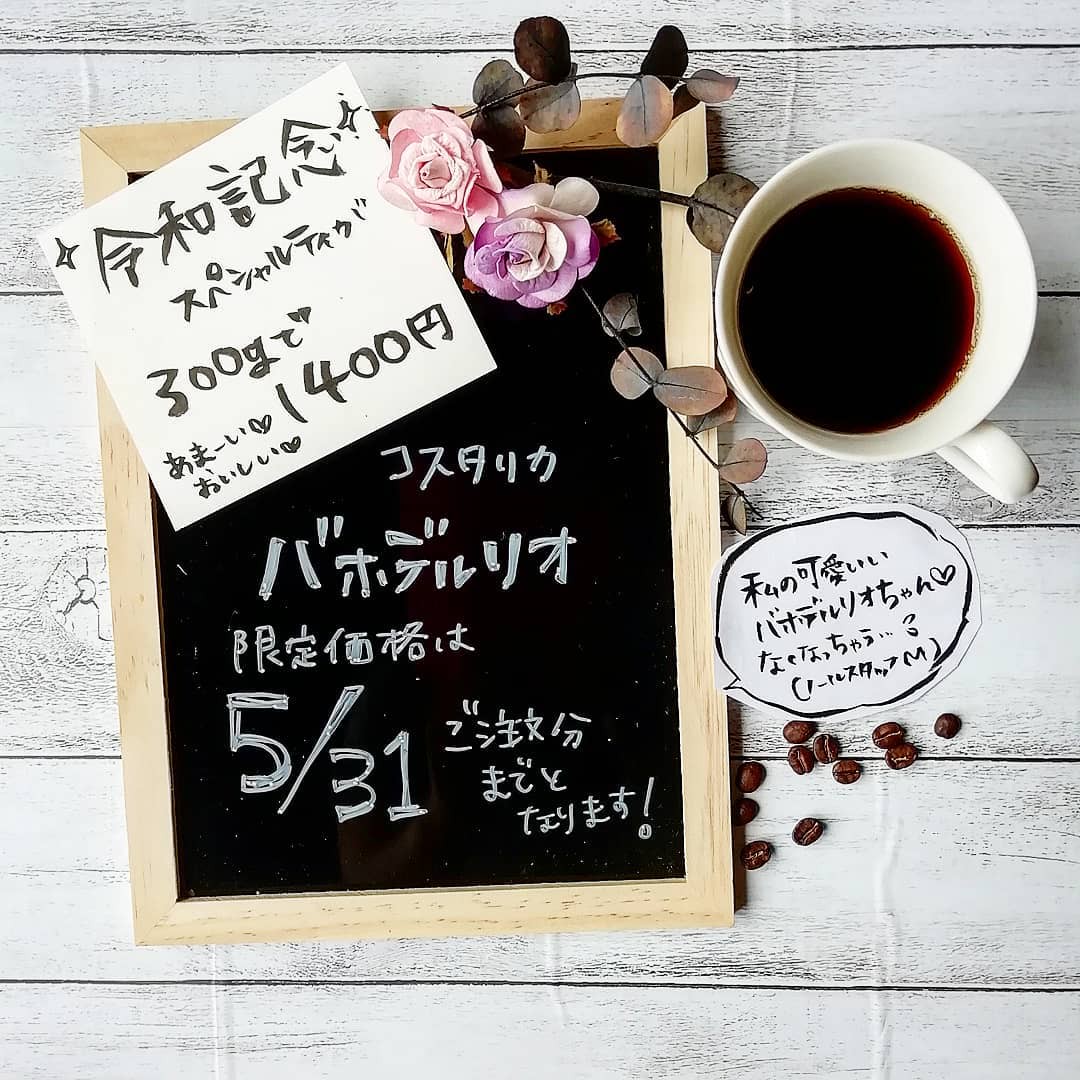 令和記念
スペシャルティが
300gで
1400円
あまーい♡
おいしい♡
コスタリカ
バホデルリオ
限定価格は
5/31
ご注文分
までと
なります！
私の可愛いい
バホデルリオちゃん♡
なくなっちゃう…
スタッフM)